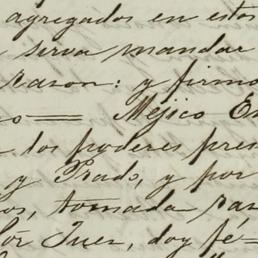 agregados en estos
serva mandar
razon: y firmo
Mejico En
los poderes pres
y Prado, y por
os, tomada raz
Juez, doy fé